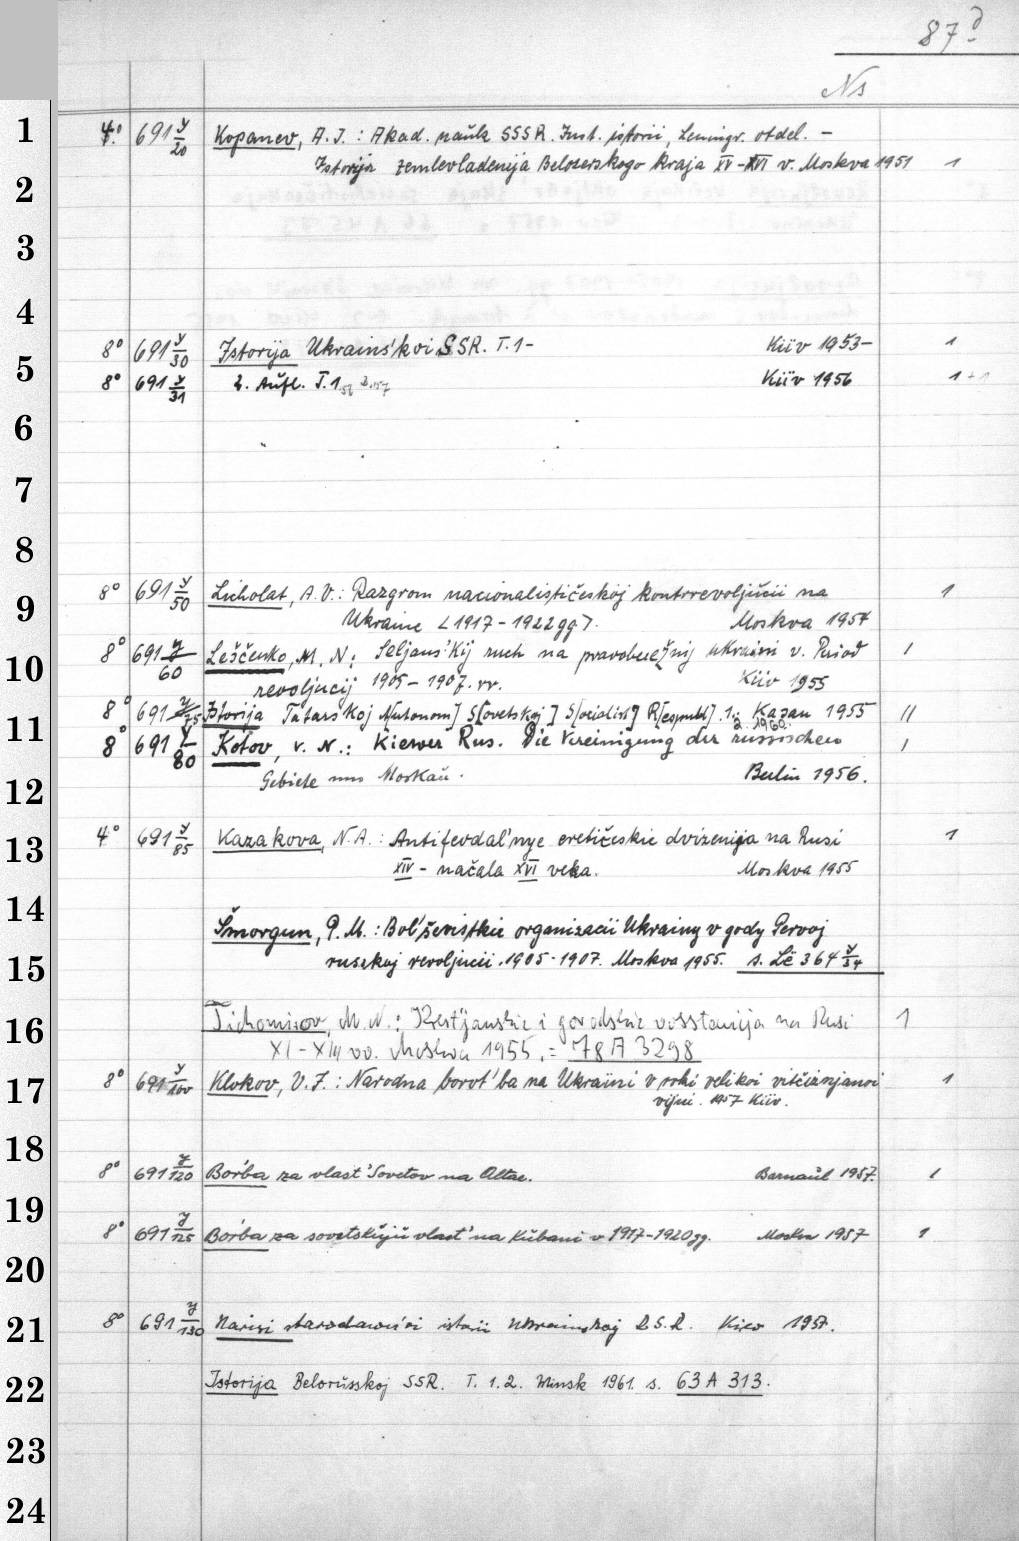 87d
Ns
1 4° 691 y/20 Kopanev, A. I.: Akad. naŭk SSSR. Inst. istorii, Leningr. otdel. –
Istorija zemlevladenija Belozerskogo kraja XV–XVI v. Moskva 1951 1
2
3
4
8° 691 y/30 Istorija Ukrains'koi SSR. T. 1– Kiiv 1953– 1
5
8° 691 y/31 2. Aŭfl. T. 1 56 2.57 Kiïv 1956 1+1
6
7
8
8° 691 y/50 Licholat, A. V.: Razgrom nacionalističeskoj kontrrevoljucii na 1
9
Ukraine <1917–1922 gg>. Moskva 1954
8° 691 y/60 Leščenko, M. N.: Seljans'kij ruch na pravoberežnij Ukraini v. Period 1
10
revoljucij 1905–1907. rr. Kiiv 1955
8° 691 y/75 Istorija Tatarskoj A[utonom] S[ovetskoj] S[ocialist] R[espubl]. 1. Kazan 1955 11
11 2. 1960.
8° 691 y/80 Kotov, V. N.: Kiewer Rus. Die Vereinigung der russischen 1
12
Gebiete um Moskaŭ. Berlin 1956.
4° 691 y/85 Kazakova, N. A.: Antifeodal'nye eretičeskie dviženija na Rusi 1
13
XIV – načala XVI veka. Moskva 1955
14
Šmorgun, P. M.: Bol'ševistskie organizacii Ukrainy v gody Pervoj
15 russkoj revoljucii. 1905–1907. Moskva 1955. s. Lč 364 y/34
Tichomirov, M. N.: Krest'janskie i gorodskie vosstanija na Rusi 1
16
XI–XIII vv. Moskva 1955. = 78 A 3298
8° 691 y/100 Klokov, V. I.: Narodna borot'ba na Ukraïni v roki velikoi vitčiznjanoi 1
17
vijni. 1957 Kiiv.
18
8° 691 y/120 Bor'ba za vlast' Sovetov na Altae. Barnaŭl 1957. 1
19
8° 691 y/125 Bor'ba za sovetskŭjŭ vlast' na Kŭbani v 1917–1920 gg. Moskva 1957 1
20
8° 691 y/130 Narisi starodavn'oi istorii Ukrainskoj R.S.R. Kiev 1957.
21
22 Istorija Belorŭsskoj SSR. T. 1. 2. Minsk 1961. s. 63 A 313.
23
24